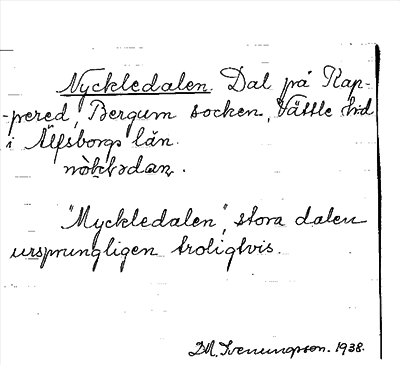 Nyckledalen. Dal på Kap-
-pered, Bergum socken, Vättle hd
i Älfsborgs län.
"Myckledalen", stora dalen
ursprungligen troligtvis.
D.M. Svenungsson. 1938.